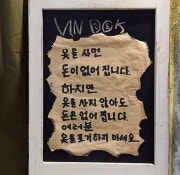 VIN DOK
옷을 사면
돈이 없어 집니다.
하지만
옷을 사지 않아도
돈은 없어 집니다.
여러분
옷을 포기하지 마세요..